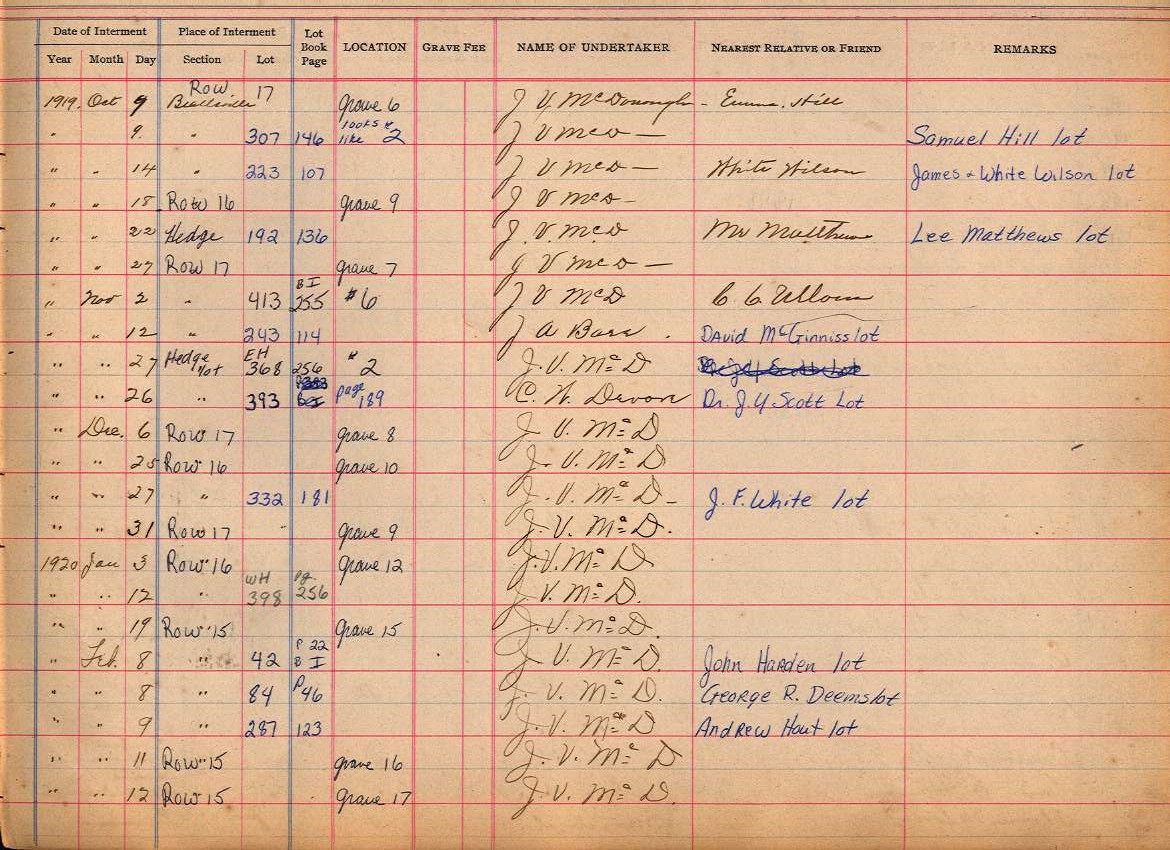 Date of Interment Place of Interment Lot Book Page LOCATION GRAVE FEE NAME OF UNDERTAKER NEAREST RELATIVE OR FRIEND REMARKS
Year Month Day Section Lot
1919. Oct 9 Row 17 grave 6 J V. McDonough - Emma Hill
" 9. " 307 146 looks like # 2 J V McD — Samuel Hill lot
" " 14 " 223 107 J V McD — White Wilson James & White Wilson lot
" " 18 Row 16 grave 9 J V McD -
" " 22 Hedge 192 136 J. V. McD Mr Matthews Lee Matthews lot
" " 27 Row 17 grave 7 J V McD —
" Nov 2 " 413 B I 255 #6 J V McD C C Ullom
" " 12 " 243 114 J A Barr . David McGinniss lot
" " 27 Hedge lot EH 368 256 # 2 J. V. Mc D
" " 26 " 393 page 189 C. W. Devon Dr. J. Y Scott Lot
" Dec. 6 Row 17 grave 8 J V. Mc D
" " 25 Row 16 grave 10 J. V. Mc D
" " 27 " 332 181 J. V. Mc D - J. F. White lot
" " 31 Row 17 " grave 9 J. V. Mc D.
1920 Jan 3 Row 16 grave 12 J. V. Mc D.
" " 12 " WH 398 Pg. 256 J. V. Mc D.
" " 19 Row 15 grave 15 J. V. Mc D.
" Feb. 8 " 42 P 22 B I J V. Mc D. John Harden lot
" " 8 " 84 P 46 J. V. Mc D. George R. Deems lot
" " 9 " 287 123 J. V. Mc D Andrew Hout lot
" " 11 Row 15 grave 16 J. V. Mc D
" " 12 Row 15 grave 17 J. V. Mc D.